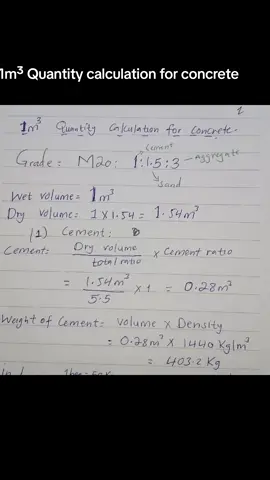 1m³ Quantity calculation for concrete
1
1m³ Quantity Calculation for Concrete.
cement
Grade: M20: 1:1.5:3 — Aggregate
Sand
Wet volume = 1m³
Dry volume: 1 x 1.54 = 1.54m³
(1) Cement:
Cement: Dry volume / total ratio x Cement ratio
= 1.54m³ / 5.5 x 1 = 0.28m³
Weight of Cement: volume x Density
= 0.28m³ x 1440 Kg/m³
= 403.2 Kg